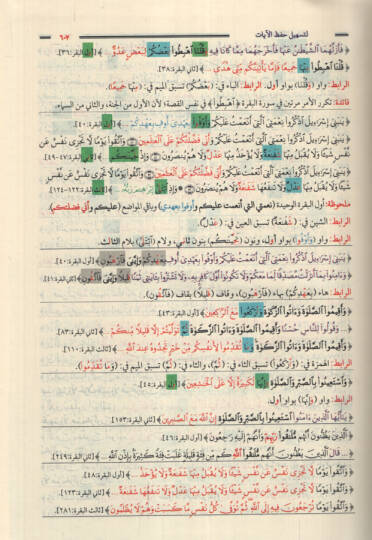 لتسهيل حفظ الآيات
﴿ فَأَزَلَّهُمَا ٱلشَّيْطَٰنُ عَنْهَا فَأَخْرَجَهُمَا مِمَّا كَانَا فِيهِ وَقُلْنَا ٱهْبِطُوا۟ بَعْضُكُمْ لِبَعْضٍ عَدُوٌّ ﴾ [أول البقرة:٣٦].
﴿ قُلْنَا ٱهْبِطُوا۟ مِنْهَا جَمِيعًا فَإِمَّا يَأْتِيَنَّكُم مِّنِّى هُدًى ... ﴾ [ثاني البقرة:٣٨].
الرابط: واو (وَقُلْنَا) بواو أول. الرابط: الباء في: (بعضكم) تسبق الميم في: (مِنْهَا جَمِيعًا).
فائدة: تكرر الأمر مرتين في سورة البقرة ﴿ ٱهْبِطُوا۟ ﴾ في نفس القصة؛ لأن الأول من الجنة، والثاني من السماء.
﴿ يَٰبَنِىٓ إِسْرَٰٓءِيلَ ٱذْكُرُوا۟ نِعْمَتِىَ ٱلَّتِىٓ أَنْعَمْتُ عَلَيْكُمْ وَأَوْفُوا۟ بِعَهْدِىٓ أُوفِ بِعَهْدِكُمْ ... ﴾
﴿ يَٰبَنِىٓ إِسْرَٰٓءِيلَ ٱذْكُرُوا۟ نِعْمَتِىَ ٱلَّتِىٓ أَنْعَمْتُ عَلَيْكُمْ وَأَنِّى فَضَّلْتُكُمْ عَلَى ٱلْعَٰلَمِينَ وَٱتَّقُوا۟ يَوْمًا لَّا تَجْزِى نَفْسٌ عَن نَّفْسٍ
شَيْـًٔا وَلَا يُقْبَلُ مِنْهَا شَفَٰعَةٌ وَلَا يُؤْخَذُ مِنْهَا عَدْلٌ وَلَا هُمْ يُنصَرُونَ وَإِذْ نَجَّيْنَٰكُم ... ﴾ [ثاني البقرة:٤٧-٤٩].
﴿ يَٰبَنِىٓ إِسْرَٰٓءِيلَ ٱذْكُرُوا۟ نِعْمَتِىَ ٱلَّتِىٓ أَنْعَمْتُ عَلَيْكُمْ وَأَنِّى فَضَّلْتُكُمْ عَلَى ٱلْعَٰلَمِينَ وَٱتَّقُوا۟ يَوْمًا لَّا تَجْزِى نَفْسٌ عَن نَّفْسٍ
شَيْـًٔا وَلَا يُقْبَلُ مِنْهَا عَدْلٌ وَلَا تَنفَعُهَا شَفَٰعَةٌ وَلَا هُمْ يُنصَرُونَ وَإِذِ ٱبْتَلَىٰٓ إِبْرَٰهِـۧمَ رَبُّهُۥ ... ﴾ [ثالث البقرة:١٢٢-١٢٤].
ملحوظة: أول البقرة الوحيدة (نعمتي التي أنعمت عليكم وأوفوا بعهدي) وباقي المواضع (عليكم وأني فضلتكم).
الرابط: الشين في: (شَفَٰعَةٌ) تسبق العين في: (عَدْلٌ).
الرابط: واو (وَأَوْفُوا۟) بواو أول، ونون (نَجَّيْنَٰكُم) بنون ثاني، ولام (ٱبْتَلَىٰٓ) بلام الثالث.
﴿ يَٰبَنِىٓ إِسْرَٰٓءِيلَ ٱذْكُرُوا۟ نِعْمَتِىَ ٱلَّتِىٓ أَنْعَمْتُ عَلَيْكُمْ وَأَوْفُوا۟ بِعَهْدِىٓ أُوفِ بِعَهْدِكُمْ وَإِيَّٰىَ فَٱرْهَبُونِ ﴾ [أول البقرة:٤٠].
﴿ وَءَامِنُوا۟ بِمَآ أَنزَلْتُ مُصَدِّقًا لِّمَا مَعَكُمْ وَلَا تَكُونُوٓا۟ أَوَّلَ كَافِرٍۭ بِهِۦ وَلَا تَشْتَرُوا۟ بِـَٔايَٰتِى ثَمَنًا قَلِيلًا وَإِيَّٰىَ فَٱتَّقُونِ ﴾ [ثاني البقرة:٤١].
الرابط: هاء (بِعَهْدِكُمْ) بهاء (فَٱرْهَبُونِ)، وقاف (قَلِيلًا) بقاف (فَٱتَّقُونِ).
﴿ وَأَقِيمُوا۟ ٱلصَّلَوٰةَ وَءَاتُوا۟ ٱلزَّكَوٰةَ وَٱرْكَعُوا۟ مَعَ ٱلرَّٰكِعِينَ ﴾ [أول البقرة:٤٣].
﴿ ... وَقُولُوا۟ لِلنَّاسِ حُسْنًا وَأَقِيمُوا۟ ٱلصَّلَوٰةَ وَءَاتُوا۟ ٱلزَّكَوٰةَ ثُمَّ تَوَلَّيْتُمْ إِلَّا قَلِيلًا مِّنكُمْ ... ﴾ [ثاني البقرة:٨٣].
﴿ وَأَقِيمُوا۟ ٱلصَّلَوٰةَ وَءَاتُوا۟ ٱلزَّكَوٰةَ وَمَا تُقَدِّمُوا۟ لِأَنفُسِكُم مِّنْ خَيْرٍ تَجِدُوهُ عِندَ ٱللَّهِ ... ﴾ [ثالث البقرة:١١٠].
الرابط: الهمزة في: (وَٱرْكَعُوا۟) تسبق الثاء في: (ثُمَّ)، والثاء في: (ثُمَّ) تسبق الميم في: (وَمَا تُقَدِّمُوا۟).
﴿ وَٱسْتَعِينُوا۟ بِٱلصَّبْرِ وَٱلصَّلَوٰةِ وَإِنَّهَا لَكَبِيرَةٌ إِلَّا عَلَى ٱلْخَٰشِعِينَ ﴾ [أول البقرة:٤٥].
الرابط: واو (وَإِنَّهَا) بواو أول.
﴿ يَٰٓأَيُّهَا ٱلَّذِينَ ءَامَنُوا۟ ٱسْتَعِينُوا۟ بِٱلصَّبْرِ وَٱلصَّلَوٰةِ إِنَّ ٱللَّهَ مَعَ ٱلصَّٰبِرِينَ ﴾ [ثاني البقرة:١٥٣].
﴿ ٱلَّذِينَ يَظُنُّونَ أَنَّهُم مُّلَٰقُوا۟ رَبِّهِمْ وَأَنَّهُمْ إِلَيْهِ رَٰجِعُونَ ﴾ [أول البقرة:٤٦].
﴿ ... قَالَ ٱلَّذِينَ يَظُنُّونَ أَنَّهُم مُّلَٰقُوا۟ ٱللَّهِ كَم مِّن فِئَةٍ قَلِيلَةٍ غَلَبَتْ فِئَةً كَثِيرَةًۢ بِإِذْنِ ٱللَّهِ ... ﴾ [ثاني البقرة:٢٤٩].
﴿ وَٱتَّقُوا۟ يَوْمًا لَّا تَجْزِى نَفْسٌ عَن نَّفْسٍ شَيْـًٔا وَلَا يُقْبَلُ مِنْهَا شَفَٰعَةٌ وَلَا يُؤْخَذُ ... ﴾ [أول البقرة:٤٨].
﴿ وَٱتَّقُوا۟ يَوْمًا لَّا تَجْزِى نَفْسٌ عَن نَّفْسٍ شَيْـًٔا وَلَا يُقْبَلُ مِنْهَا عَدْلٌ وَلَا تَنفَعُهَا شَفَٰعَةٌ ... ﴾ [ثاني البقرة:١٢٣].
﴿ وَٱتَّقُوا۟ يَوْمًا تُرْجَعُونَ فِيهِ إِلَى ٱللَّهِ ثُمَّ تُوَفَّىٰ كُلُّ نَفْسٍ مَّا كَسَبَتْ وَهُمْ لَا يُظْلَمُونَ ﴾ [ثالث البقرة:٢٨١].